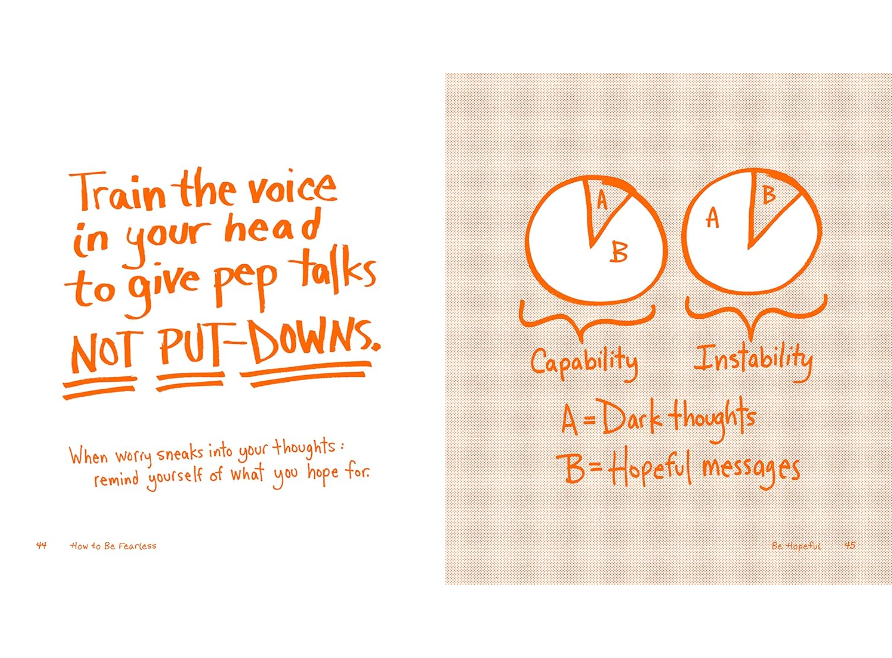 Train the voice
in your head
to give pep talks
NOT PUT-DOWNS.
When worry sneaks into your thoughts:
remind yourself of what you hope for.
44 How to Be Fearless
A
B
A
B
Capability
Instability
A = Dark thoughts
B = Hopeful messages
Be Hopeful 45